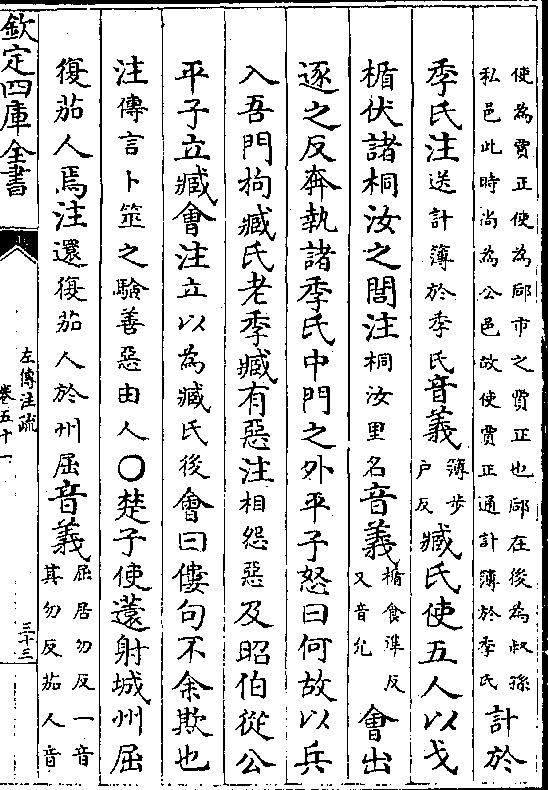 使為賈正使為郈市之賈正也郈在後為叔孫
私邑此時尚為公邑故使賈正通計簿於季氏
計於
季氏注送計簿於季氏音義簿步戶反臧氏使五人以戈
楯伏諸桐汝之閭注桐汝里名音義楯食準反又音允會出
逐之反奔執諸季氏中門之外平子怒曰何故以兵
入吾門拘臧氏老季臧有惡注相怨惡及昭伯從公
平子立臧會注立以為臧氏後會曰僂句不余欺也
注傳言卜筮之驗善惡由人○楚子使薳射城州屈
復茄人焉注還復茄人於州屈音義屈居勿反一音其勿反茄人音
欽定四庫全書
左傳注疏
卷五十一
三十三